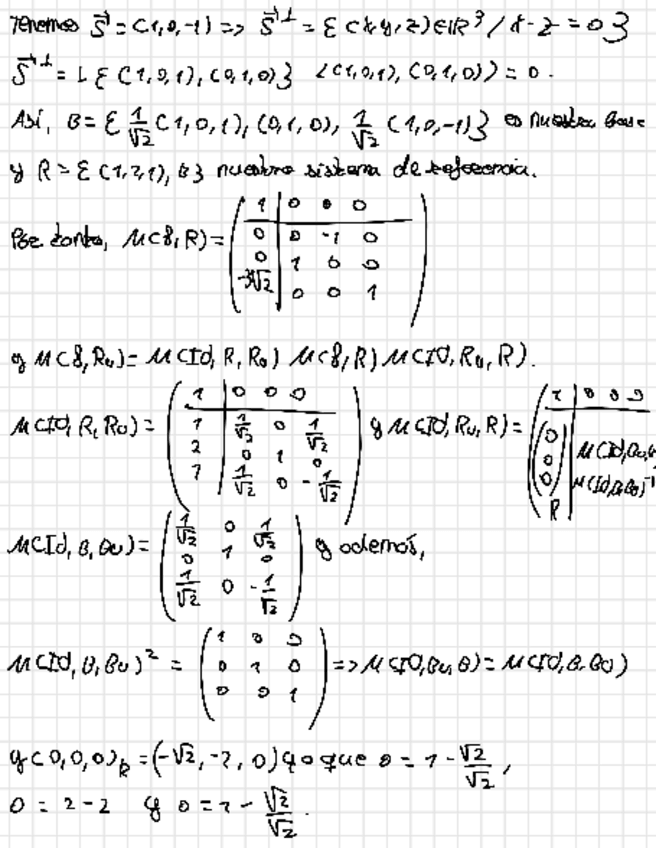 Tenemos S⃗ = (1,0,-1) => S⃗^⊥ = {(x,y,z)∈ℝ^3 / x-z=0}
S⃗^⊥ = L{(1,0,1),(0,1,0)} <(1,0,1),(0,1,0)> = 0.
Así, B={1/√2 (1,0,1),(0,1,0), 1/√2 (1,0,-1)} es nuestra base
y R={(1,2,1),B} nuestro sistema de referencia.
Por tanto, M(f,R)= (1 | 0 0 0
0 | 0 -1 0
0 | 1 0 0
-3√2 | 0 0 1)
y M(f,R₀)= M(Id,R,R₀) M(f,R) M(Id,R₀,R).
M(Id,R,R₀)= (1 | 0 0 0
1 | 1/√2 0 1/√2
2 | 0 1 0
1 | 1/√2 0 -1/√2) y M(Id,R₀,R)= (1 | 0 0 0
(0
0
0)_R | M(Id,B₀,B
M(Id,B,B₀)^-1
M(Id,B,B₀)= (1/√2 0 1/√2
0 1 0
1/√2 0 -1/√2) y además,
M(Id,B,B₀)^2 = (1 0 0
0 1 0
0 0 1) => M(Id,B₀,B)= M(Id,B,B₀)
y (0,0,0)_R = (-√2,-2,0) ya que 0 = 1 - √2/√2,
0 = 2-2 y 0 = 1 - √2/√2.